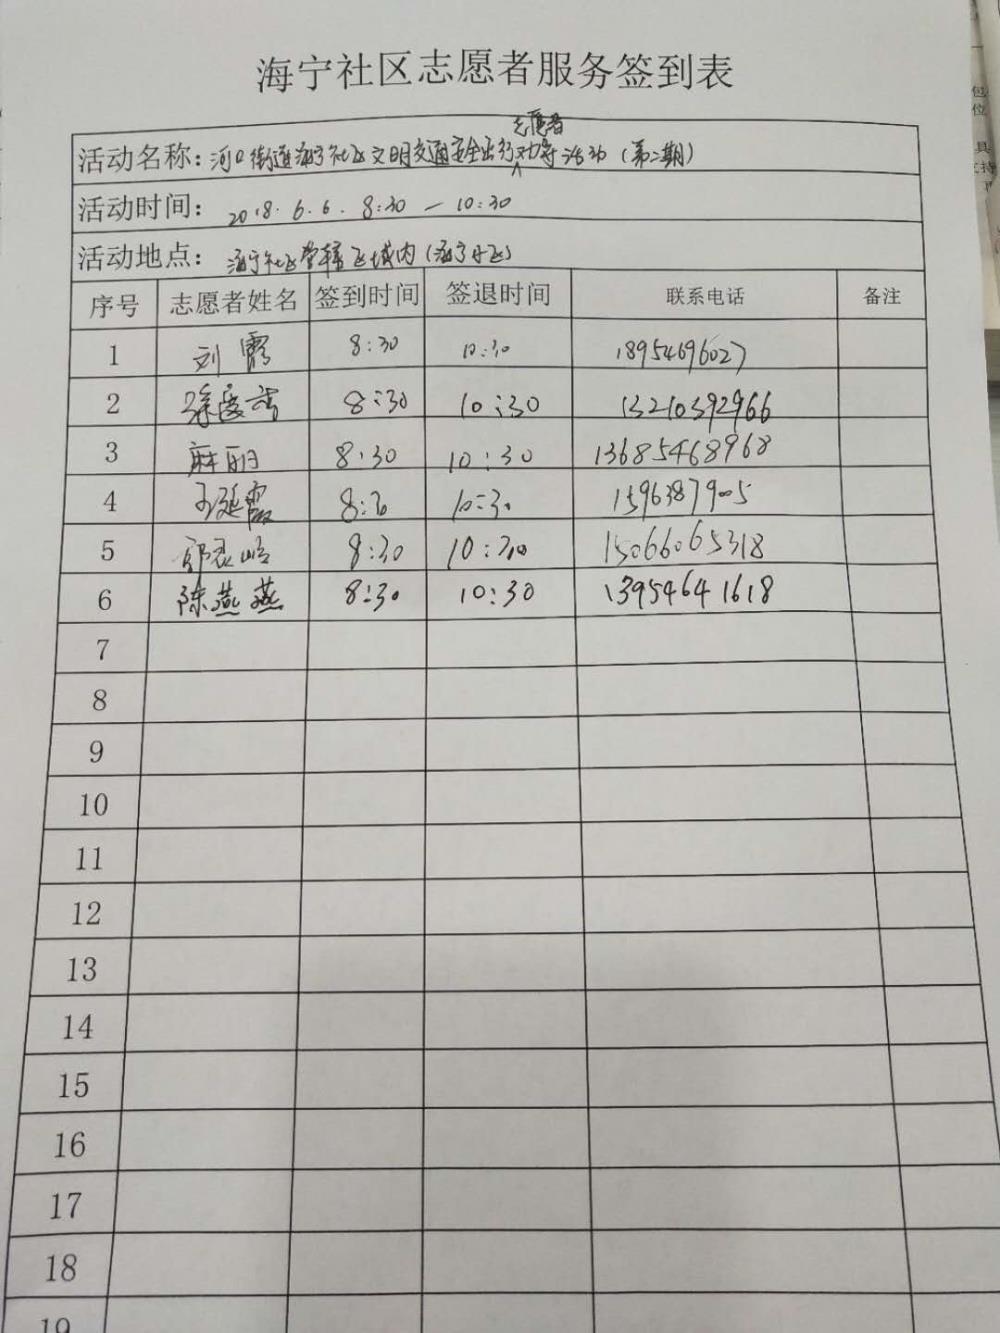 海宁社区志愿者服务签到表
志愿者
活动名称：河口街道海宁社区文明交通安全出行劝导活动（第二期）
活动时间：2018.6.6. 8:30—10:30
活动地点：海宁社区管辖区域内（海宁小区）
序号 志愿者姓名 签到时间 签退时间 联系电话 备注
1 刘霞 8:30 10:30 18954696027
2 8:30 10:30 13210392966
3 麻丽 8:30 10:30 13685468968
4 王延霞 8:30 10:30 15963879005
5 8:30 10:30 15066065318
6 陈燕燕 8:30 10:30 13954641618
7
8
9
10
11
12
13
14
15
16
17
18
19